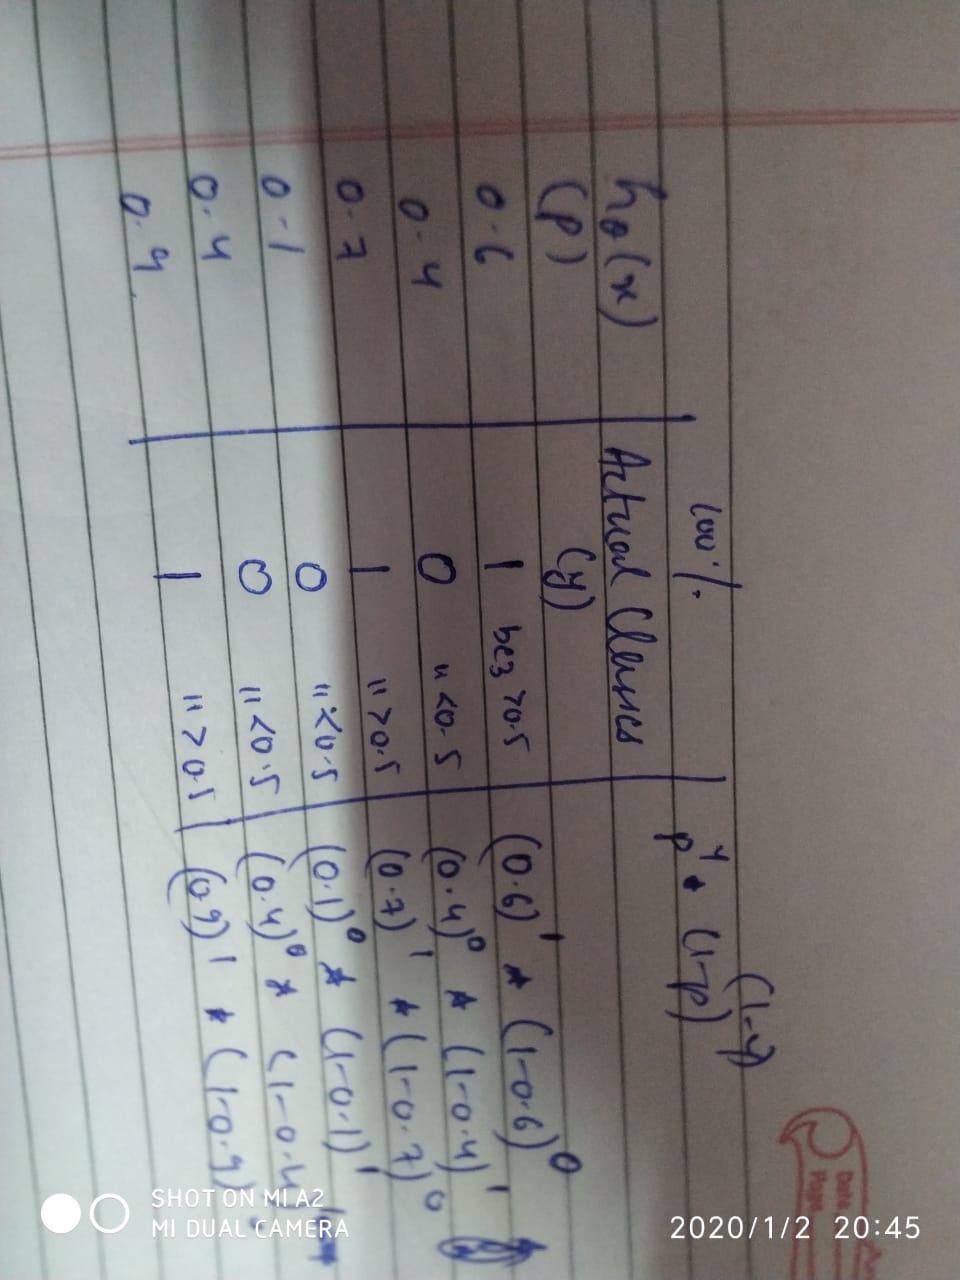 100%
hθ(x) Actual Classes p^y * (1-p)^(1-y)
(p) (y)
0.6 1 bcz >0.5 (0.6)^1 * (1-0.6)^0
0.4 0 " <0.5 (0.4)^0 * (1-0.4)^1
0.7 1 " >0.5 (0.7)^1 * (1-0.7)^0
0.1 0 " <0.5 (0.1)^0 * (1-0.1)^1
0.4 0 " <0.5 (0.4)^0 * (1-0.4
0.9 1 " >0.5 (0.9)^1 * (1-0.9)
Date
Page
SHOT ON MI A2
MI DUAL CAMERA
2020/1/2 20:45